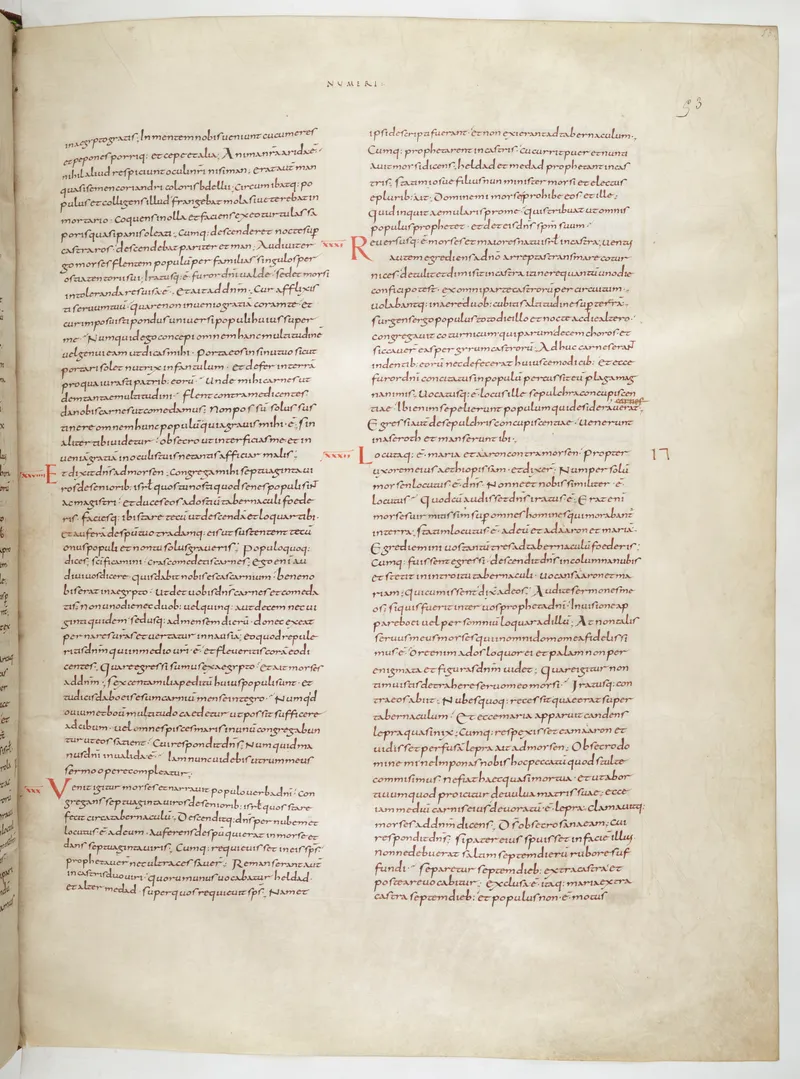 NUMERI
93
in aegypto gratis; In mentem nobis ueniunt cucumeres
et pepones porriq; et cepe et alia; Anima nra arida ē
nihil aliud respiciunt oculi nri nisi man; Erat aut man
quasi semen coriandri coloris bdellii; Circumibatq; po
pulus et colligens illud frangebat mola siue terebat in
mortario. Coquens in olla et faciens ex eo tortulas sa
poris quasi panis oleati; Cumq; descenderet nocte sup
castra ros descendebat pariter et man; Audiuit er
go moses flentem populū per familias singulos per
ostia tentorii sui; Iratusq; ē furor dni ualde. sed et mosi
intoleranda res uisa ē. et ait ad dnm; Cur afflixis
ti seruum tuū. quare non inuenio gratiā coram te. et
cur imposuisti pondus uniuersi populi huius super
me; Numquid ego concepi omnem hanc multitudinē
uel genui eam ut dicas mihi. porta eos in sinu tuo sicut
portari solet nutrix infantulum. et defer in terrā
pro qua iurasti patrib; eorū; Unde mihi carnes ut
dem tantae multitudini; Flent contra me dicentes
da nobis carnes ut comedamus; Non possū solus sus
tinere omnem hunc populū quia grauis mihi ē; Sin
aliter tibi uidetur. obsecro ut interficias me et in
ueniā gratiā in oculis tuis ne tantis afficiar malis;
xxviiii Et dixit dns ad mosen. congrega mihi septuaginta ui
ros de seniorib; isrl quos tu nosti quod senes populi sint
ac magistri. et duces eos ad ostiū tabernaculi foede
ris. faciesq; ibi stare tecū ut descendā et loquar tibi.
et auferā de spū tuo tradamq; eis ut sustentent tecū
onus populi et non tu solus graueris; Populo quoq;
dices. sanctificamini. cras comedetis carnes; Ego enim au
diui uos dicere. quis dabit nobis escas carnium. bene no
bis erat in aegypto; Ut det uobis dns carnes et comeda
tis. non uno die nec duob; uel quinq; aut decem nec ui
ginti quidem. sed usq; ad mensem dierū. donec exeat
per nares uras et uertatur in nausiā; eo quod repule
ritis dnm qui in medio uri ē. et fleueritis corā eo di
centes. Quare egressi sumus ex aegypto; Et ait moses
ad dnm. sexcenta milia peditū huius populi sunt. et
tu dicis dabo eis esum carniū mense integro; Numqd
ouium et boū multitudo caedetur ut possit sufficere
ad cibum. uel omnes pisces maris in unū congregabun
tur ut eos satient; Cui respondit dns; Numquid ma
nus dni inualida ē; Iam nunc uidebis utrum meus
sermo opere compleatur;
xxx Venit igitur moses et narrauit populo uerba dni; Con
gregans septuaginta uiros de seniorib; isrl quos stare
fecit circa tabernaculū; Descenditq; dns per nubem et
locutus ē ad eum. Auferens de spū qui erat in mose et
dans septuaginta uiris; Cumq; requieuisset in eis sps.
prophetauer̄ nec ultra cessauer̄; Remanserant aut
in castris duo uiri quorum unus uocabatur heldad.
et alter medad. super quos requieuit sps; Nam et
ipsi descripti fuerant. et non exierant ad tabernaculum;
Cumq; prophetarent in castris. cucurrit puer et nuntia
uit mosi dicens. heldad et medad prophetant in cas
tris; statim iosue filius nun minister mosi et electus
e plurib; ait; Domine mi moses prohibe eos et ille;
Quid inquit aemularis pro me. quis tribuat ut omnis
populus prophetet. et det eis dns spm suum;
xxxi Reuersusq; ē moses et maiores natu isrl in castra; uentus
autem egrediens a dno arreptas trans mare cotur
nices detulit et dimisit in castra itinere quantū uno die
confici potest. ex omni parte castrorū per circuitum;
uolabantq; in aere duob; cubitis altitudine sup terrā;
Surgens ergo populus toto die illo et nocte ac die altero.
congregauit coturnicum qui parum decem choros. et
siccauer̄ eas per gyrum castrorū; Adhuc carnes erant
in dentib; eorū nec defecerat huiuscemodi cib; et ecce
furor dni concitatus in populū percussit eū plaga mag
na nimis; Uocatusq; ē locus ille sepulchra concupiscen
tiae; Ibi enim sepelierunt populum qui desiderauerat carnes;
Egressi aut de sepulchris concupiscentiae. uenerunt
in aseroth et manserunt ibi;
xxxii Locutaq; ē maria et aaron contra mosen. propter
uxorem eius aethiopissam. et dixer̄; Num per solū
mosen locutus ē dns. Nonne et nobis similiter ē
locutus; Quod cū audisset dns iratus ē; Erat eni
moses uir mitissimus sup omnes homines qui morabant
in terra; statim locutus ē ad eū et ad aaron et mariā;
Egredimini uos tantū tres ad tabernaculū foederis;
Cumq; fuissent egressi. descendit dns in columna nubis
et stetit in introitu tabernaculi. uocans aaron et ma
riam; Qui cum issent dixit ad eos; Audite sermones me
os; si quis fuerit inter uos propheta dni. In uisione ap
parebo ei uel per somniū loquar ad illū; At non talis
seruus meus moses qui in omni domo mea fidelissi
mus ē; Ore enim ad os loquor ei et palam non per
enigmata et figuras dnm uidet; Quare igitur non
timuistis detrahere seruo meo mosi; Iratusq; con
tra eos abiit; Nubes quoq; recessit quae erat super
tabernaculum; Et ecce maria apparuit candens
lepra quasi nix; Cumq; respexisset eam aaron et
uidisset perfusā lepra ait ad mosen; Obsecro do
mine mi ne imponas nobis hoc peccatū quod stulte
commisimus. ne fiat haec quasi mortua. et ut abor
tiuum quod proicitur de uulua matris suae; ecce
iam mediū carnis eius deuoratū ē lepra; clamauitq;
moses ad dnm dicens; Ds obsecro sana eam; Cui
respondit dns; si pater eius spuisset in facie illius
nonne debuerat saltem septem dierū rubore suf
fundi; separetur septem dieb; extra castra et
postea reuocabitur; Exclusa ē itaq; maria extra
castra septem dieb; et populus non ē motus